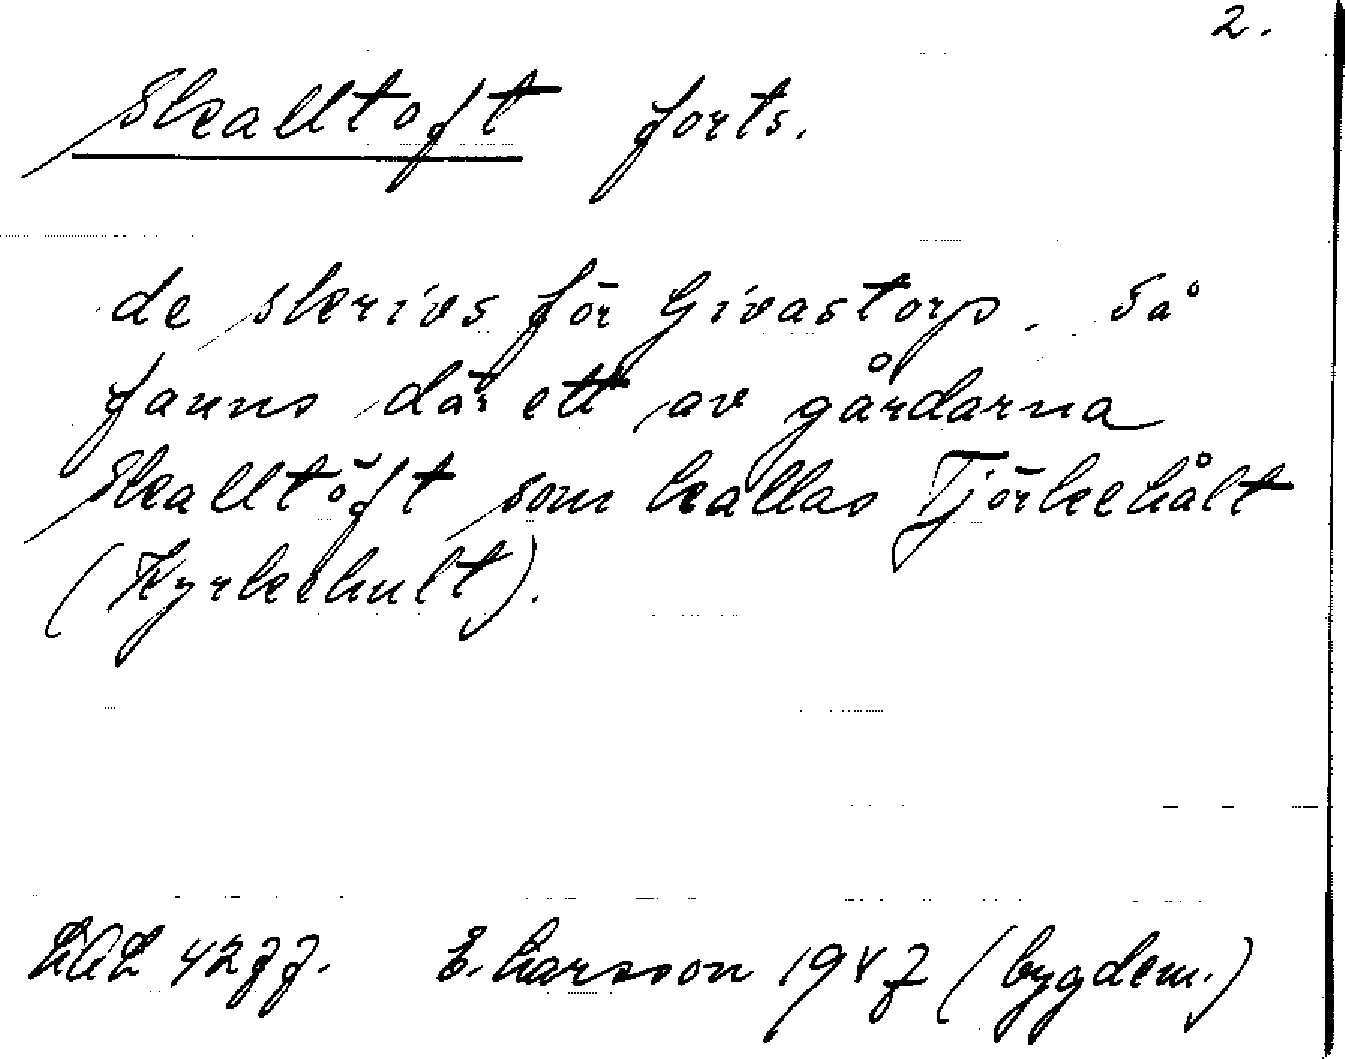 2.
Skalltoft forts.
de skrivs för Givastorp. Så
fanns där ett av gårdarna
Skalltöft som kallas Tjörkehålt
(Kyrkehult).
LAL 4277. E. Larsson 1947 (bygdem.)